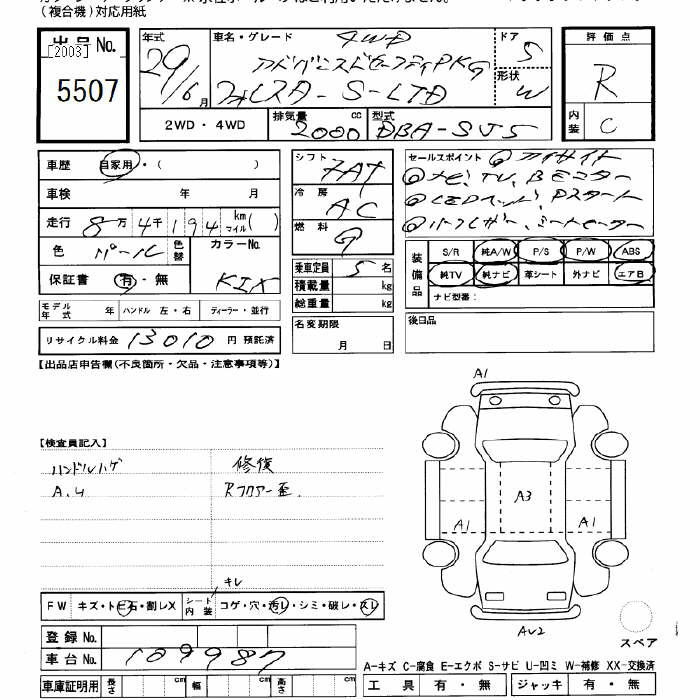 (複合機)対応用紙
出品No.
[2003]
5507
年式
29/6月
車名・グレード 4WD
アドバンスドセーフティPKG
フォレスター S-LTD
ドア 5
形状 W
評価点
R
内装 C
2WD・4WD
排気量 2000 cc
型式 DBA-SJ5
車歴 自家用・( )
車検 年 月
走行 8万4千194 km マイル( )
色 パール 色替 カラーNo.
保証書 有・無 K1X
シフト 7AT
冷房 AC
燃料 G
乗車定員 5名
積載量 kg
総重量 kg
セールスポイント ◎アイサイト
◎ナビ、TV、Bモニター
◎LEDヘッド、Pスタート
◎パークレザー、シートヒーター
装備品 S/R 純A/W P/S P/W ABS
純TV 純ナビ 革シート 外ナビ エアB
ナビ型番:
モデル年式 年 ハンドル 左・右 ディーラー・並行
名変期限 月 日
後日品
リサイクル料金 13010 円 預託済
【出品店申告欄(不良箇所・欠品・注意事項等)】
A1
【検査員記入】
ハンドルハゲ 修復
A.U Rフロアー歪.
A3
A1 A1
キレ
FW キズ・トビ石・割レX シート内装 コゲ・穴・汚レ・シミ・破レ・スレ
登録No.
車台No. 109987
AU2
スペア
A-キズ C-腐食 E-エクボ S-サビ U-凹ミ W-補修 XX-交換済
車庫証明用 長さ cm 幅 cm 高さ cm
工具 有・無 ジャッキ 有・無